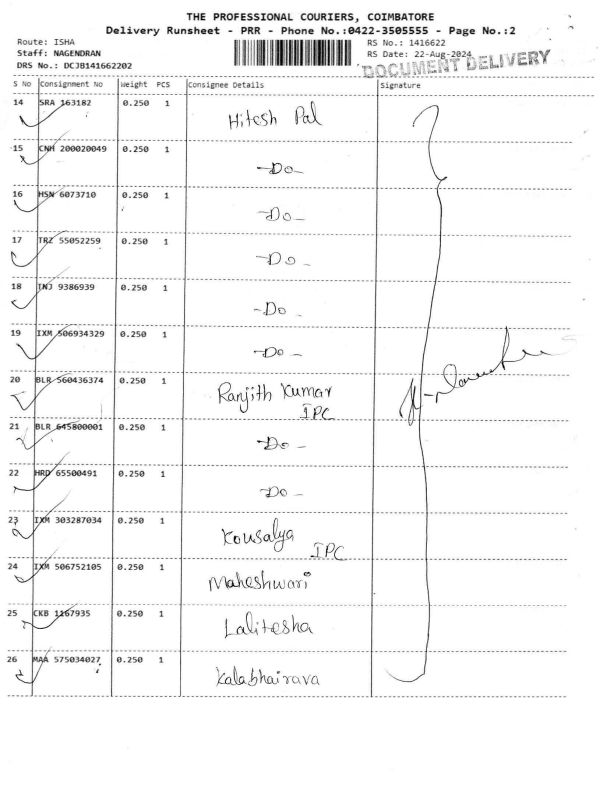 THE PROFESSIONAL COURIERS, COIMBATORE
Delivery Runsheet - PRR - Phone No.:0422-3505555 - Page No.:2
Route: ISHA
Staff: NAGENDRAN
DRS No.: DCJB141662202
RS No.: 1416622
RS Date: 22-Aug-2024
DOCUMENT DELIVERY
S No Consignment No Weight PCS Consignee Details Signature
14 SRA 163182 0.250 1 Hitesh Pal
15 CNH 200020049 0.250 1 -Do-
16 HSN 6073710 0.250 1 -Do-
17 TRZ 55052259 0.250 1 -Do-
18 TNJ 9386939 0.250 1 -Do-
19 IXM 506934329 0.250 1 -Do-
20 BLR 560436374 0.250 1 Ranjith Kumar
IPC
21 BLR 645800001 0.250 1 -Do-
22 HRD 65500491 0.250 1 -Do-
23 IXM 303287034 0.250 1 Kousalya
IPC
24 IXM 506752105 0.250 1 Maheshwari
25 CKB 1167935 0.250 1 Lalitesha
26 MAA 575034027 0.250 1 Kalabhairava